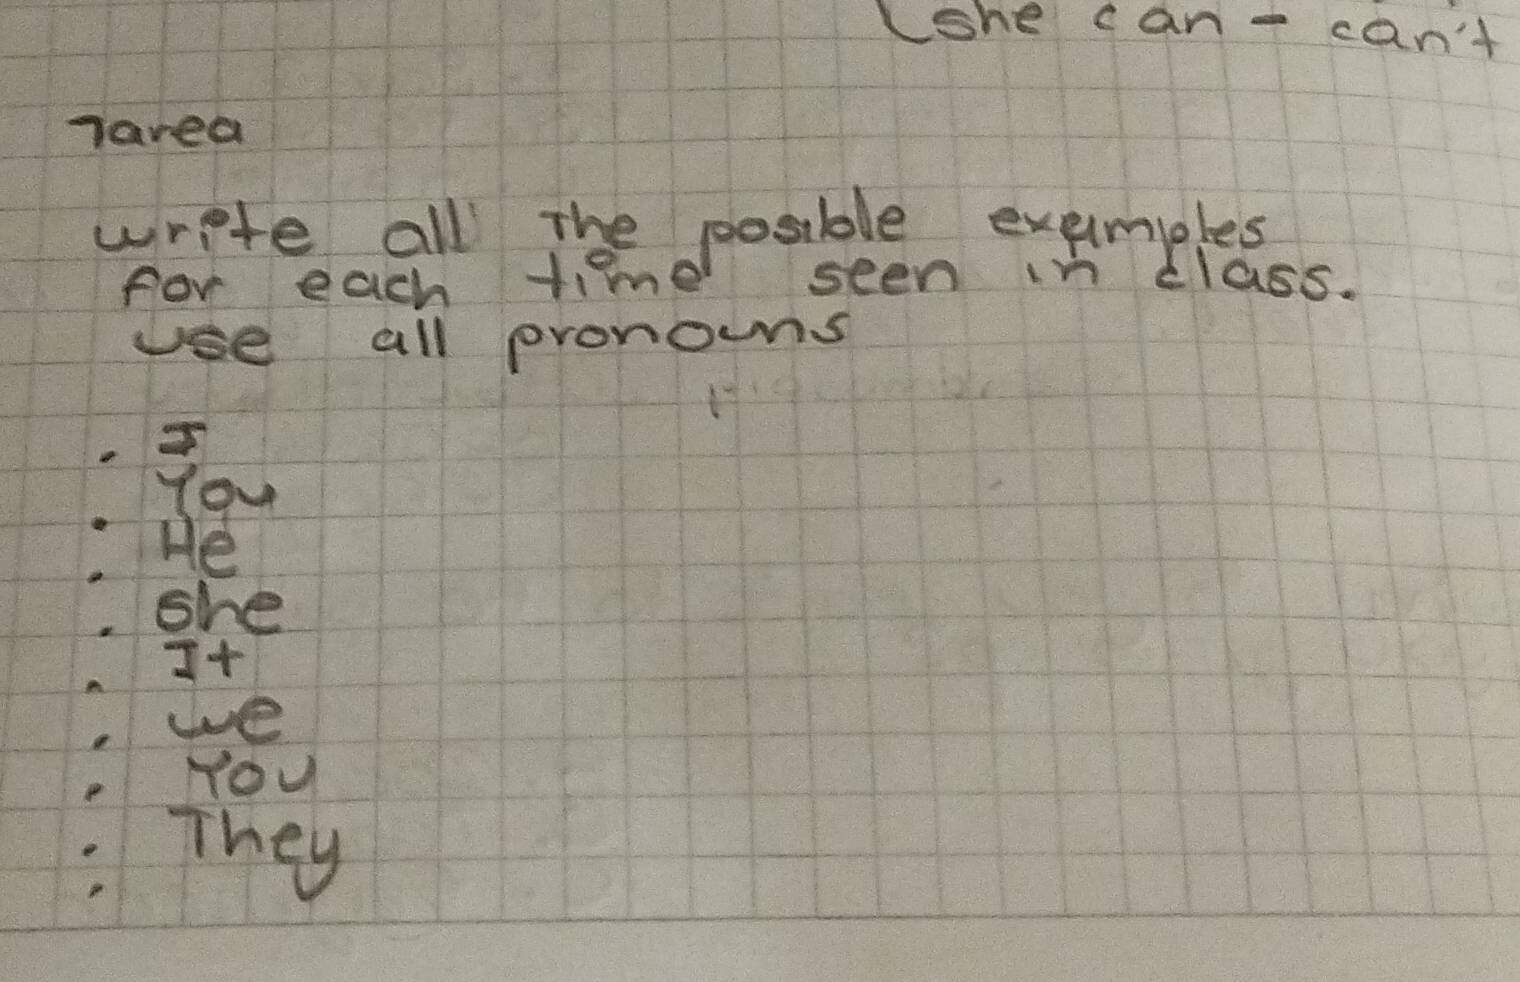 she can - can't
Tarea
write all the posible examples
for each time seen in class.
use all pronouns
. I
. You
. He
. she
. It
. we
. You
. They
.